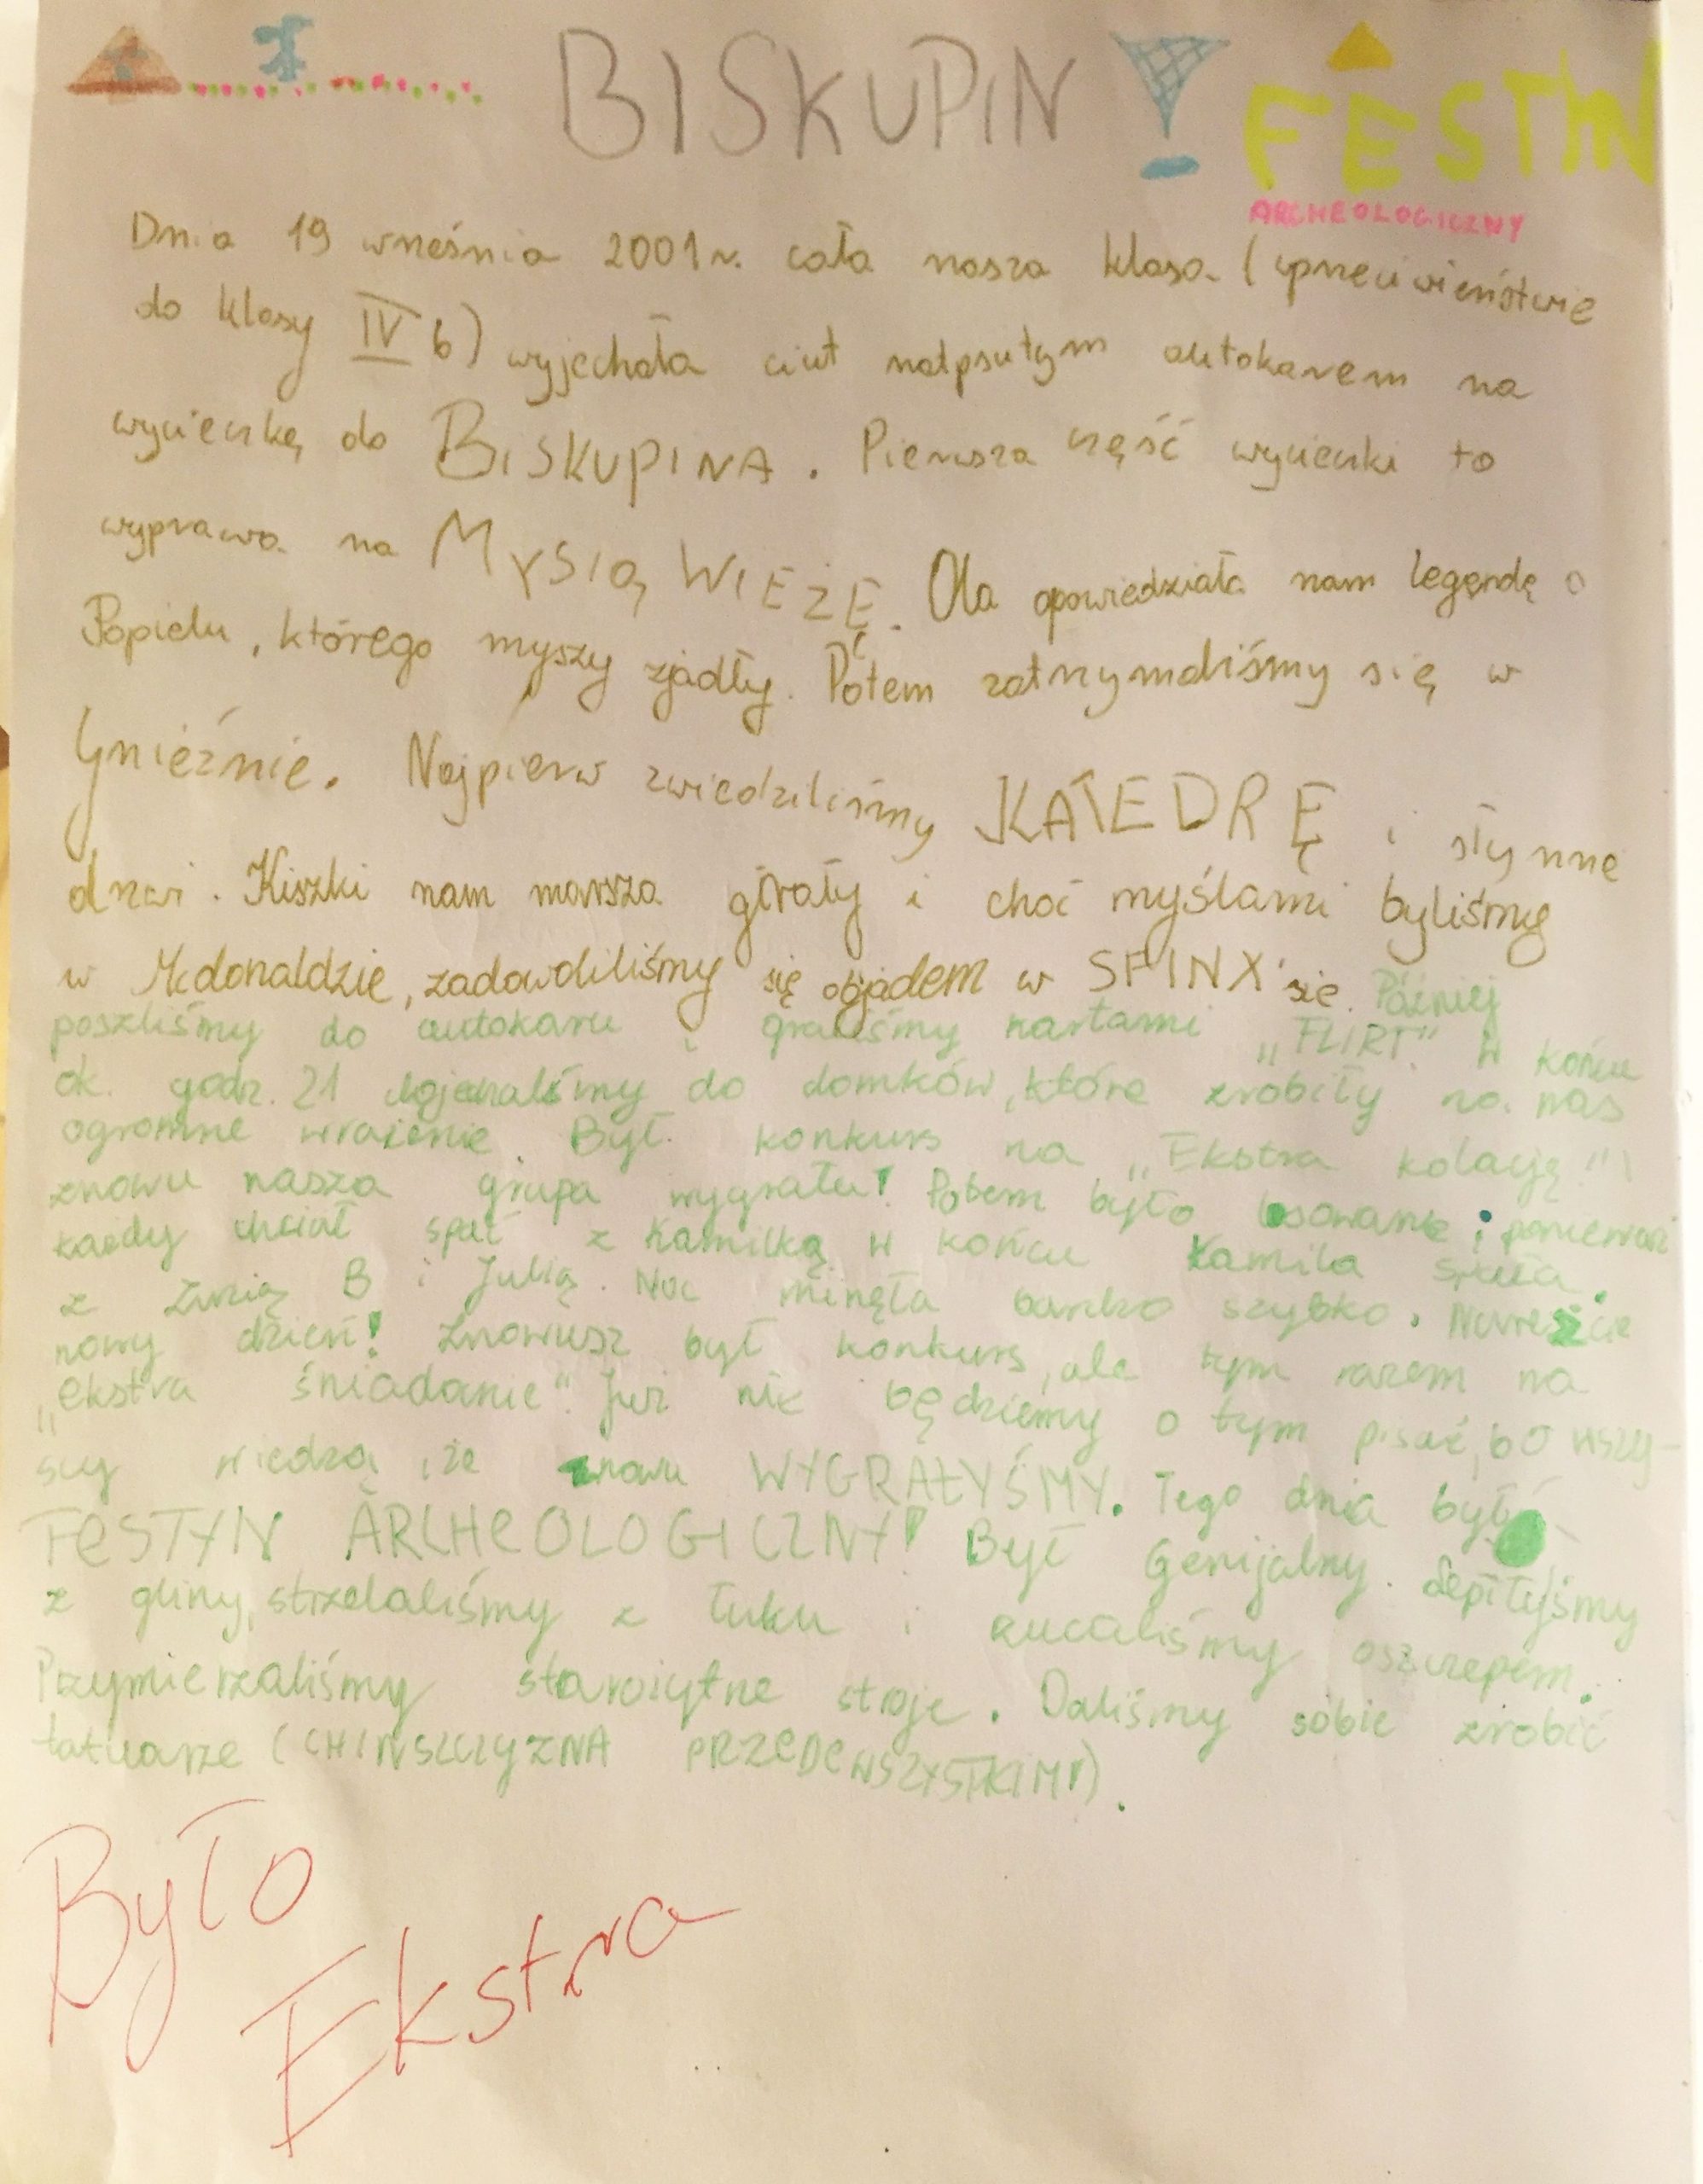 BISKUPIN FESTYN
ARCHEOLOGICZNY
Dnia 19 września 2001r. cała nasza klasa (przeciwieństwie
do klasy IV b) wyjechała ciut nadpsutym autokarem na
wycieczkę do BISKUPINA. Pierwsza część wycieczki to
wyprawa na MYSIĄ WIEŻĘ. Ola opowiedziała nam legendę o
Popielu, którego myszy zjadły. Potem zatrzymaliśmy się w
Gnieźnie. Najpierw zwiedziliśmy KATEDRĘ i słynne
drzwi. Kiszki nam marsza grały i choć myślami byliśmy
w Mcdonaldzie, zadowoliliśmy się objadem w SFINX'sie. Później
poszliśmy do autokaru i graliśmy kartami „FLIRT". W końcu
ok. godz. 21 dojechaliśmy do domków, które zrobiły na nas
ogromne wrażenie. Był konkurs na „Ekstra kolację" i
znowu nasza grupa wygrała! Potem było losowanie, ponieważ
każdy chciał spać z Kamilką. W końcu Kamila spała
z Zuzią B i Julią. Noc minęła bardzo szybko. Nareszcie
nowy dzień! Znowusz był konkurs, ale tym razem na
„ekstra śniadanie". Już nie będziemy o tym pisać, bo wszy-
scy wiedzą, że znowu WYGRAŁYŚMY. Tego dnia był
FESTYN ARCHEOLOGICZNY! Był Genijalny. Lepiłyśmy
z gliny, strzelaliśmy z łuku i rucaliśmy oszczepem.
Przymierzaliśmy starożytne stroje. Daliśmy sobie zrobić
tatuarze (CHIŃSZCZYZNA PRZEDEWSZYSTKIM!).
Było
Ekstra